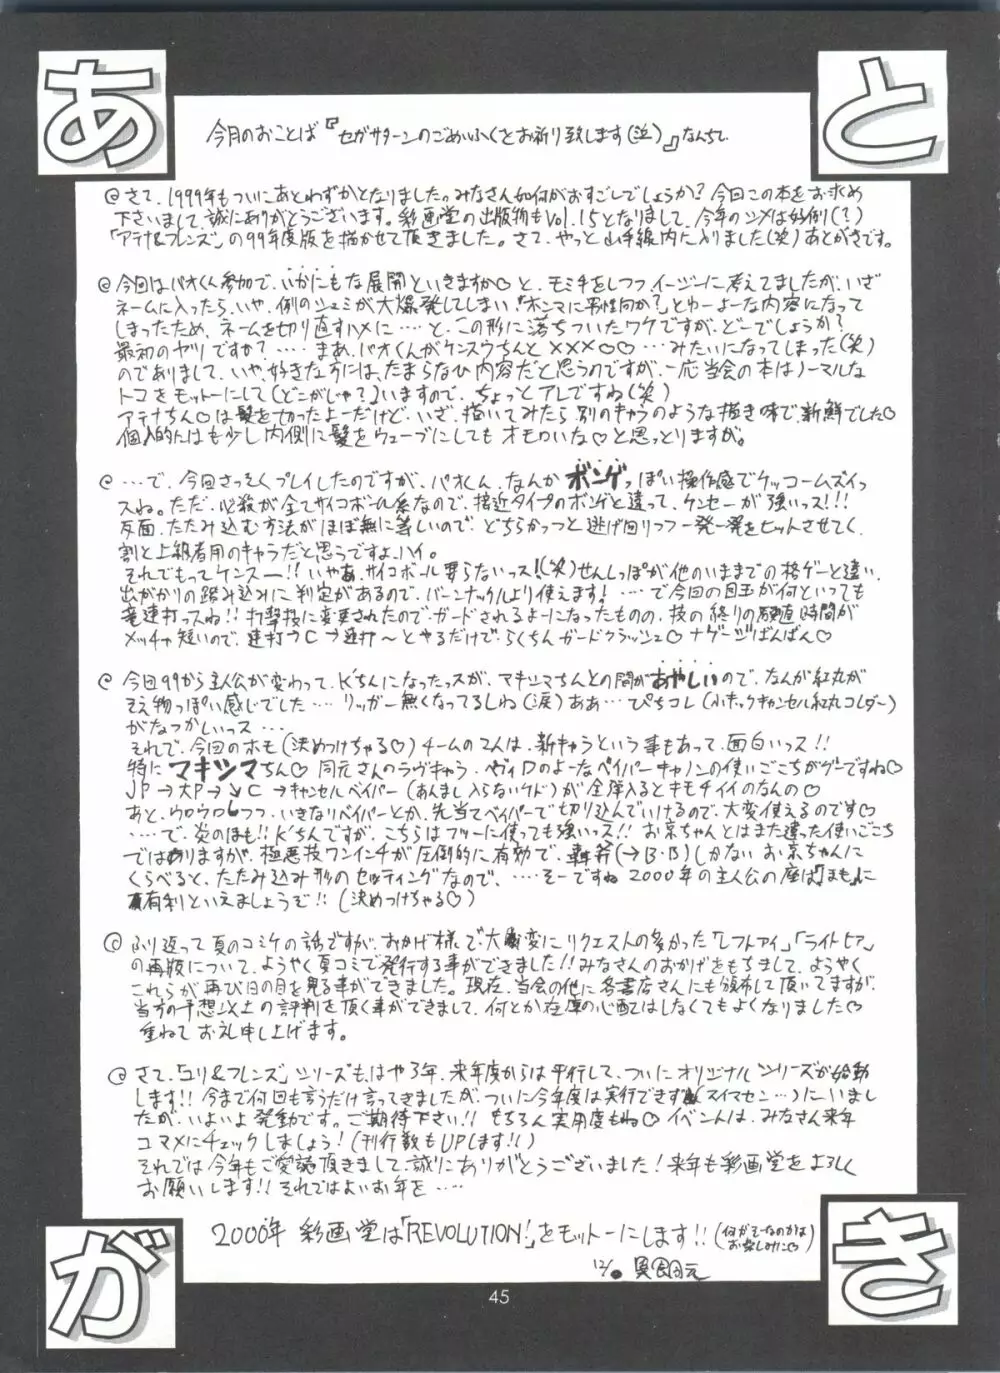 あとがき
今月のおことば『セガサターンのごめいふくをお祈り致します(泣)』なんちて
@さて、1999年もついにあとわずかとなりました。みなさん如何がおすごしでしょうか?今回この本をお求め
下さいまして、誠にありがとうございます。彩画堂の出版物もVol.15となりまして、今年のシメは好例(?)
「アテナ&フレンズ」の99年度版を描かせて頂きました。さて、やっと山手線内に入りました(笑)あとがきです。
@今回はパオくん参加で、いかにもな展開といきますか♡と、モミ手をしつつイージーに考えてましたが、いざ
ネームに入ったら、いや、例のシュミが大爆発してしまい『ホンマに男性向か?』とゆーよーな内容になって
しまったため、ネームを切り直すハメに……と、この形に落ちついたワケですが、どーでしょうか?
最初のヤツですか?……まあ、パオくんがケンスウちんと×××♡♡……みたいになってしまった(笑)
のでありまして、いや、好きな方には、たまらなひ内容だと思うのですが、一応当会の本はノーマルな
トコをモットーにして(どこがじゃ?)いますので、ちょっとアレですね(笑)
アテナちん♡は髪を切ったよーだけど、いざ、描いてみたら別のキャラのような描き味で、新鮮でした♡
個人的にはも少し内側に髪をウェーブにしてもオモロいな♡と思っとりますが。
@…で、今回さっそくプレイしたのですが、パオくん、なんかボンゲっぽい操作感でケッコームズイっ
スね。ただ、必殺が全てサイコボール系なので、接近タイプのボンゲと違って、ケンセーが強いっス!!!
反面、たたみ込む方法がほぼ無に等しいので、どちらかっつと逃げ回りつつ一発一発をヒットさせてく、
割と上級者用のキャラだと思うですよ、ハイ。
それでもってケンスー!!いやあ、サイコボール要らないっス!(笑)せんしっぽが他のいままでの格ゲーと違い、
出がかりの踏み込みに判定があるので、バーンナックルより使えます!……で今回の目玉が何といっても
竜連打っスね!!打撃技に変更されたので、ガードされるよーになったものの、技の終りの硬直時間が
メッチャ短いので、連打→C→連打〜とやるだけで、らくちんガードクラッシュ♡ナゲージばんばん♡
@今回99から主人公が変わって、K'ちんになったっスが、マキシマちんとの間があやしいので、なんか紅丸が
そえ物っぽい感じでした……リッガー無くなってるしね(涙)ああ…ぴちコレ(小キックキャンセル紅丸コレダー)
がなつかしいっス…
それで、今回のホモ(決めつけちゃる♡)チームの2人は、新キャラという事もあって、面白いっス!!
特にマキシマちん♡同元さんのラヴキャラ、ヘヴィDのよーなベイパーキャノンの使いごこちがグーですね♡
JP→大P→↘C→キャンセルベイパー(あんまし入らないケド)が全弾入るとキモチイイのなんの♡
あと、ウロウロしつつ、いきなりベイパーとか、先当てベイパーで切り込んでいけるので、大変使えるのです♡
……で、炎のほも!!K'ちんですが、こちらはフツーに使っても強いっス!!お京ちゃんとはまた違った使いごこち
ではありますが、極悪技ワンインチが圧倒的に有効で、轟斧(→B・B)しかないお京ちゃんに
くらべると、たたみ込み形のセッティングなので、……そーですね2000年の主人公の座は「ほも」に
有利といえましょうぞ!!(決めつけちゃる♡)
@ふり返って夏のコミケの話ですが、おかげ様で、大変にリクエストの多かった「レフトアイ」「ライトヒア」
の再販について、ようやく夏コミで発行する事ができました!!みなさんのおかげをもちまして、ようやく
これらが再び日の目を見る事ができました。現在、当会の他に各書店さんにも頒布して頂いてますが、
当方の予想以上の評判を頂く事ができまして、何とか在庫の心配はしなくてもよくなりました♡
重ねてお礼申し上げます。
@さて、「ユリ&フレンズ」シリーズも、はや3年、来年度からは平行して、ついにオリジナルシリーズが始動
します!!今まで何回も言うだけ言ってきましたが、ついに今年度は実行できず(スイマセン…)にいまし
たが、いよいよ発動です。ご期待下さい!!もちろん実用度もね♡イベントは、みなさん来年
コマメにチェックしましょう!(刊行数もUPします!!)
それでは今年もご愛読頂きまして、誠にありがとうございました!来年も彩画堂をよろしく
お願いします!!それではよいお年を……
2000年 彩画堂は「REVOLUTION!」をモットーにします!!(何がそーなのかはお楽しみに♡)
12/
45